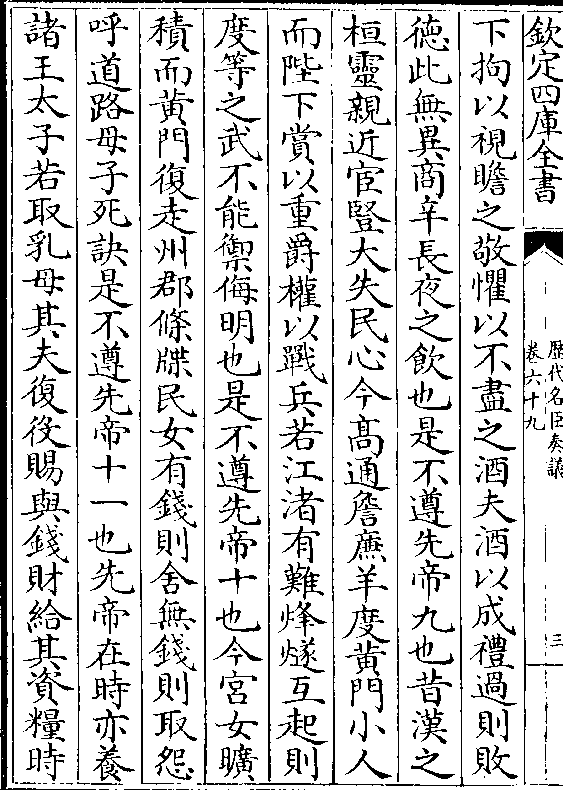 欽定四庫全書
歷代名臣奏議
卷六十九
三
下拘以視瞻之敬懼以不盡之酒夫酒以成禮過則敗
徳此無異商辛長夜之飲也是不遵先帝九也昔漢之
桓靈親近宦豎大失民心今髙通詹廉羊度黄門小人
而陛下賞以重爵權以戰兵若江渚有難烽燧互起則
度等之武不能禦侮明也是不遵先帝十也今宮女曠
積而黄門復走州郡條牒民女有錢則舍無錢則取怨
呼道路母子死訣是不遵先帝十一也先帝在時亦養
諸王太子若取乳母其夫復役賜與錢財給其資糧時